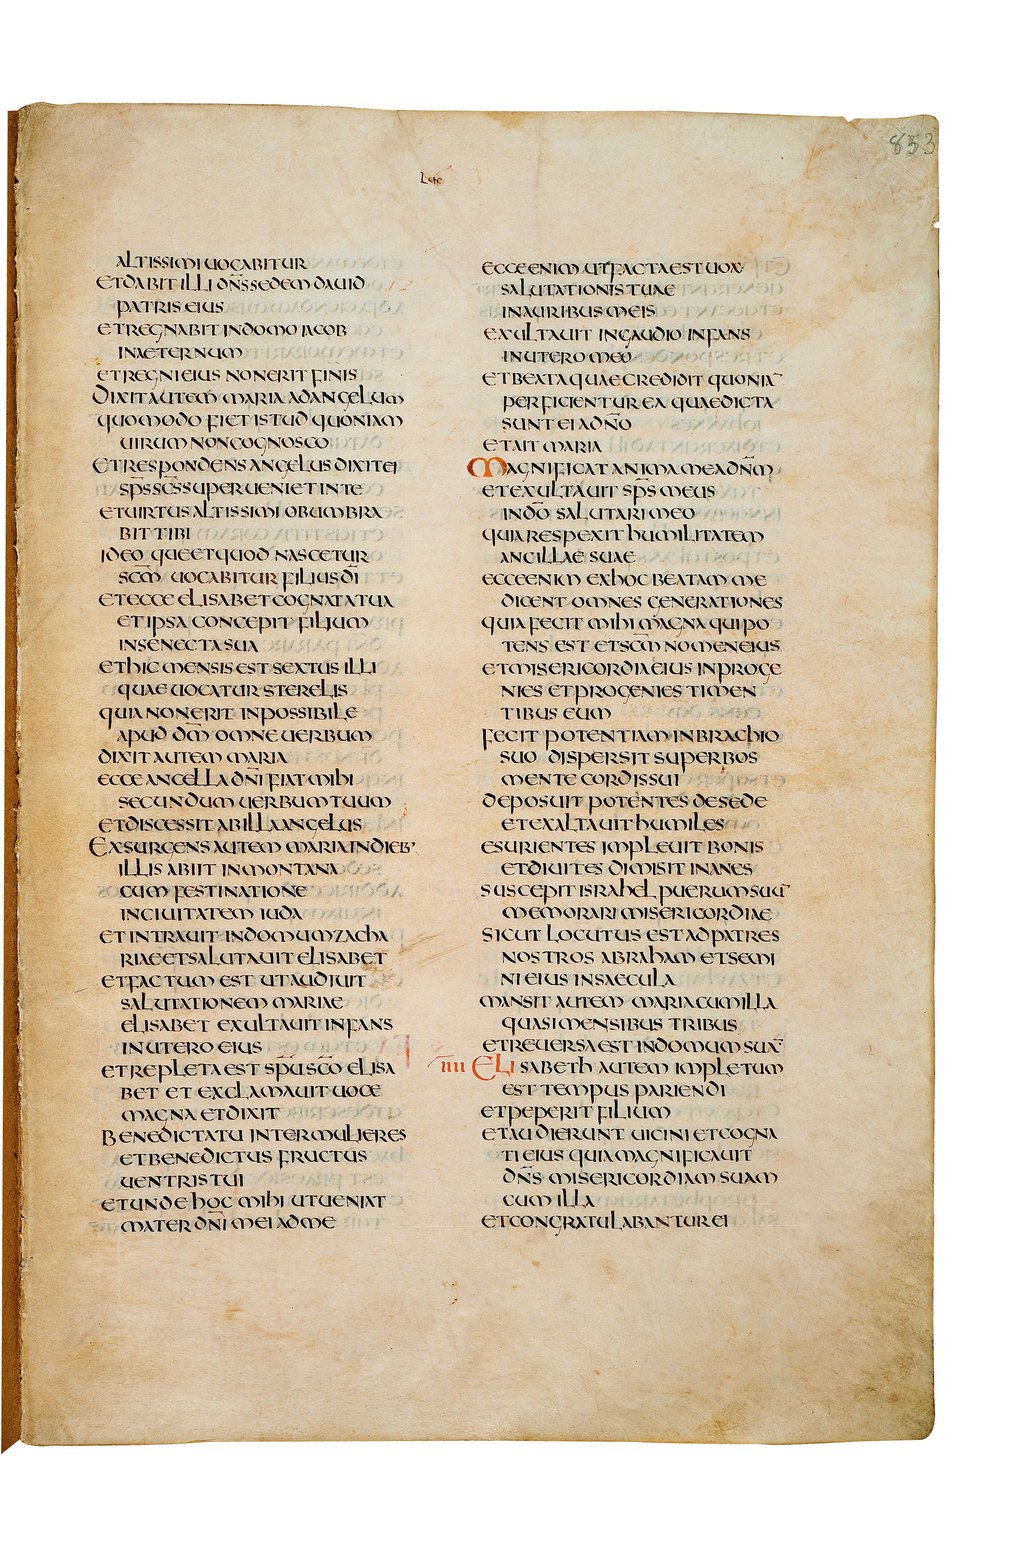 853
Luc
ALTISSIMI UOCABITUR
ET DABIT ILLI DN̅S SEDEM DAUID
PATRIS EIUS
ET REGNABIT IN DOMO IACOB
IN AETERNUM
ET REGNI EIUS NON ERIT FINIS
DIXIT AUTEM MARIA AD ANGELUM
QUOMODO FIET ISTUD QUONIAM
UIRUM NON COGNOSCO
ET RESPONDENS ANGELUS DIXIT EI
SP̅S SC̅S SUPERUENIET IN TE
ET UIRTUS ALTISSIMI OBUMBRA
BIT TIBI
IDEOQUE ET QUOD NASCETUR
SC̅M UOCABITUR FILIUS DI̅
ET ECCE ELISABET COGNATA TUA
ET IPSA CONCEPIT FILIUM
IN SENECTA SUA
ET HIC MENSIS EST SEXTUS ILLI
QUAE UOCATUR STERELIS
QUIA NON ERIT INPOSSIBILE
APUD DM̅ OMNE UERBUM
DIXIT AUTEM MARIA
ECCE ANCELLA DN̅I FIAT MIHI
SECUNDUM UERBUM TUUM
ET DISCESSIT AB ILLA ANGELUS
EXSURGENS AUTEM MARIA IN DIEB'
ILLIS ABIIT IN MONTANA
CUM FESTINATIONE
IN CIUITATEM IUDA
ET INTRAUIT IN DOMUM ZACHA
RIAE ET SALUTAUIT ELISABET
ET FACTUM EST UT AUDIUIT
SALUTATIONEM MARIAE
ELISABET EXULTAUIT INFANS
IN UTERO EIUS
ET REPLETA EST SP̅U SC̅O ELISA
BET ET EXCLAMAUIT UOCE
MAGNA ET DIXIT
BENEDICTA TU INTER MULIERES
ET BENEDICTUS FRUCTUS
UENTRIS TUI
ET UNDE HOC MIHI UT UENIAT
MATER DN̅I MEI AD ME
ECCE ENIM UT FACTA EST UOX
SALUTATIONIS TUAE
IN AURIBUS MEIS
EXULTAUIT IN GAUDIO INFANS
IN UTERO MEO
ET BEATA QUAE CREDIDIT QUONIA̅
PERFICIENTUR EA QUAE DICTA
SUNT EI A DN̅O
ET AIT MARIA
MAGNIFICAT ANIMA MEA DN̅M
ET EXULTAUIT SP̅S MEUS
IN DO̅ SALUTARI MEO
QUIA RESPEXIT HUMILITATEM
ANCILLAE SUAE
ECCE ENIM EX HOC BEATAM ME
DICENT OMNES GENERATIONES
QUIA FECIT MIHI MAGNA QUI PO
TENS EST ET SC̅M NOMEN EIUS
ET MISERICORDIA EIUS IN PROGE
NIES ET PROGENIES TIMEN
TIBUS EUM
FECIT POTENTIAM IN BRACHIO
SUO DISPERSIT SUPERBOS
MENTE CORDIS SUI
DEPOSUIT POTENTES DE SEDE
ET EXALTAUIT HUMILES
ESURIENTES IMPLEUIT BONIS
ET DIUITES DIMISIT INANES
SUSCEPIT ISRAHEL PUERUM SUU̅
MEMORARI MISERICORDIAE
SICUT LOCUTUS EST AD PATRES
NOSTROS ABRAHAM ET SEMI
NI EIUS IN SAECULA
MANSIT AUTEM MARIA CUM ILLA
QUASI MENSIBUS TRIBUS
ET REUERSA EST IN DOMUM SUA̅
IIII ELISABETH AUTEM IMPLETUM
EST TEMPUS PARIENDI
ET PEPERIT FILIUM
ET AUDIERUNT UICINI ET COGNA
TI EIUS QUIA MAGNIFICAUIT
DN̅S MISERICORDIAM SUAM
CUM ILLA
ET CONGRATULABANTUR EI